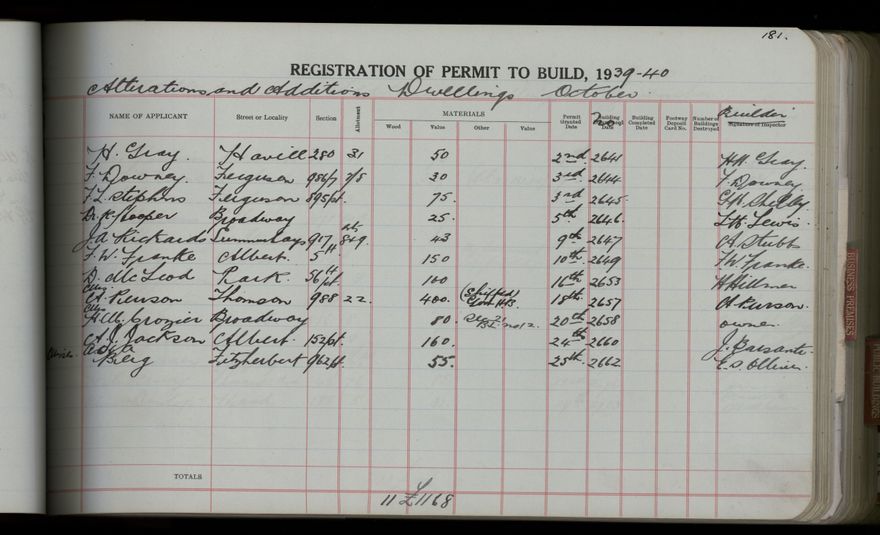 181.
REGISTRATION OF PERMIT TO BUILD, 1939-40
Alterations and Additions Dwellings October
NAME OF APPLICANT Street or Locality Section Allotment MATERIALS Wood Value Other Value Permit Granted Date No Building Date Building Completed Date Footway Deposit Card No. Number of Buildings Destroyed Builder Signature of Inspector
H. Gray. Havill 280 31 50 2nd 2641 H.H. Gray.
F. Downey. Ferguson 986/7 7/8 30 3rd 2644 F. Downey
F. L. Stephens Ferguson 895pt. 75. 3rd 2645 Shelley
Dr. K. Hooper Broadway 25. 5th 2646. Lewis.
J. A. Rickards Summerhays 917 8&9. 43 9th 2647 A Stubbs
F. W. Franke Albert. 5 150 10th 2649 F. W. Franke.
D. McLeod Park. 56 pt. 100 16th 2653 H Hillman
A. Pierson Thomson 988 22. 400. (Shifted) 18th 2657 A Pierson.
Crozier Broadway 80. 20th 2658 owner.
A. J. Jackson Albert. 152pt. 160. 24th 2660 J. Barsanti
Berg Fitzherbert 962pt. 55. 25th 2662 E. S. Ollivier.
TOTALS
11 £1168
BUSINESS PREMISES
PUBLIC BUILDINGS